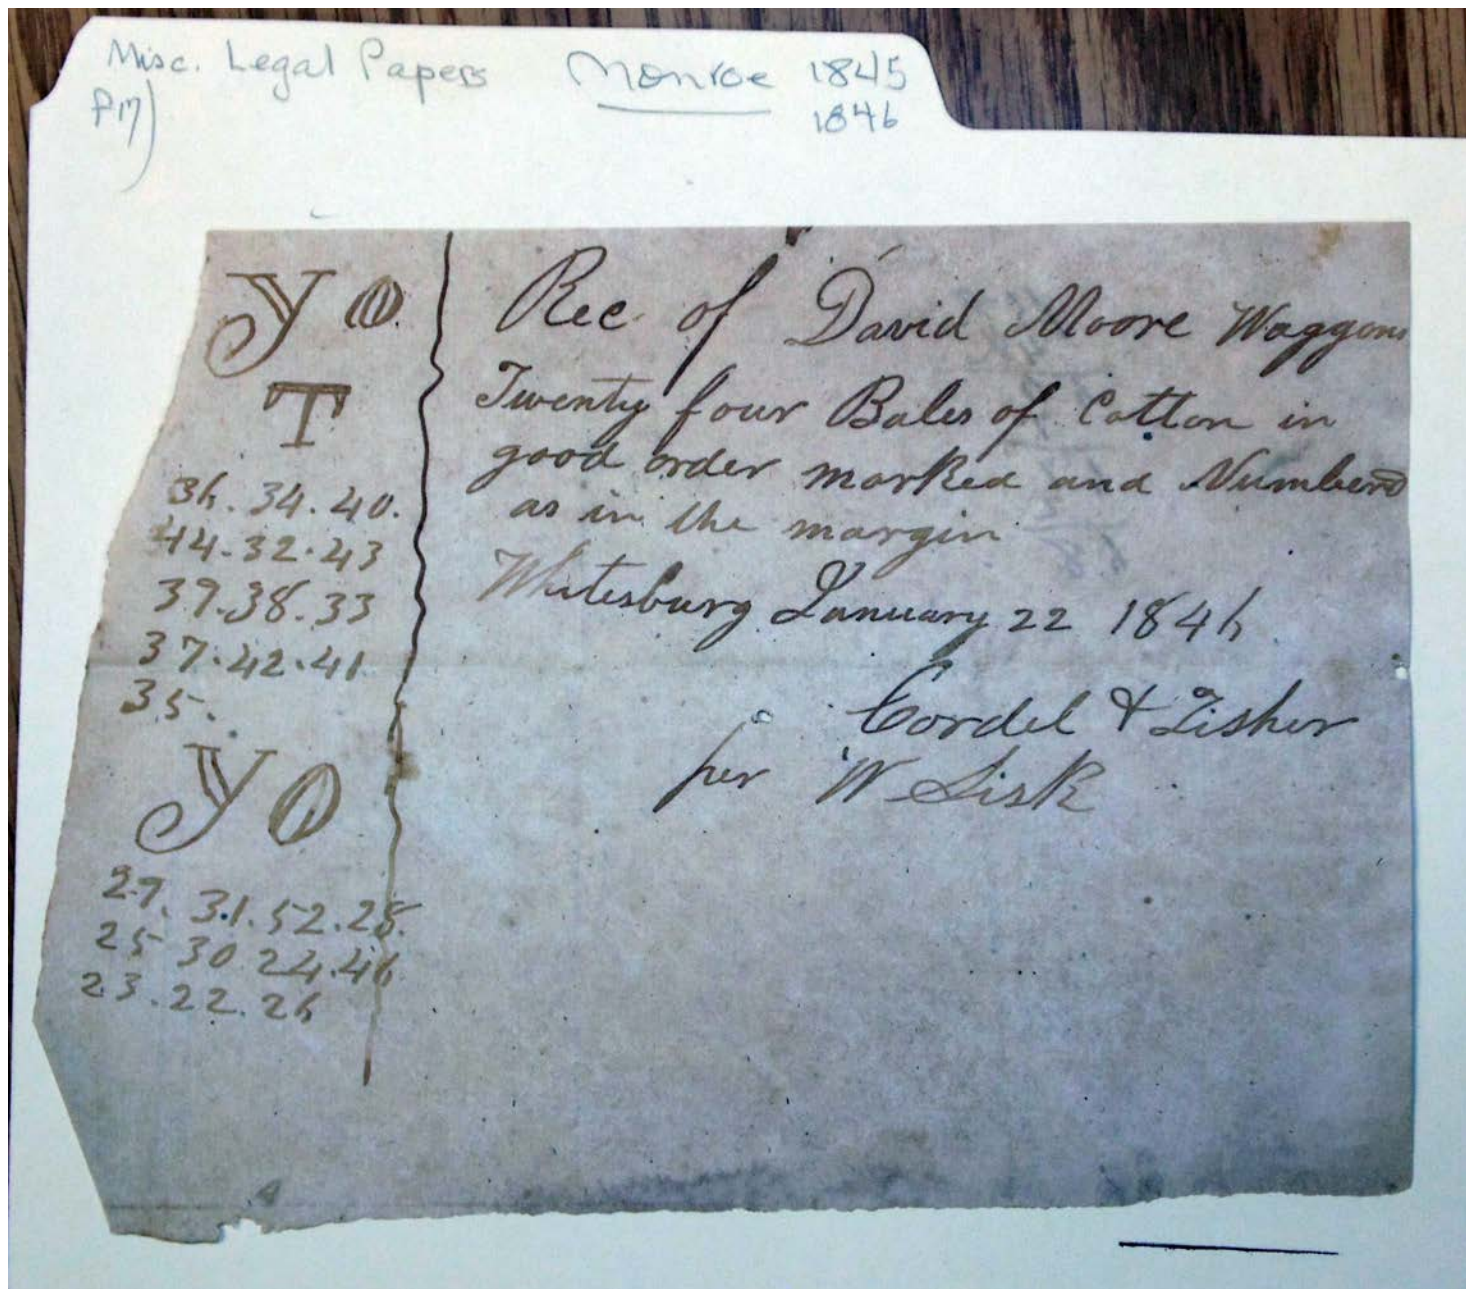 Misc. Legal Papers Monroe 1845
1846
Yo.
T
36. 34. 40.
44. 32. 43
39. 38. 33
37. 42. 41
35.
Yo
27. 31. 52. 28.
25 30 24. 46
23. 22. 26
Rec of David Moore Waggons
Twenty four Bales of Cotton in
good order marked and Numberd
as in the margin
Whitesburg January 22 1846
Cordel & Fisher
per W Sisk